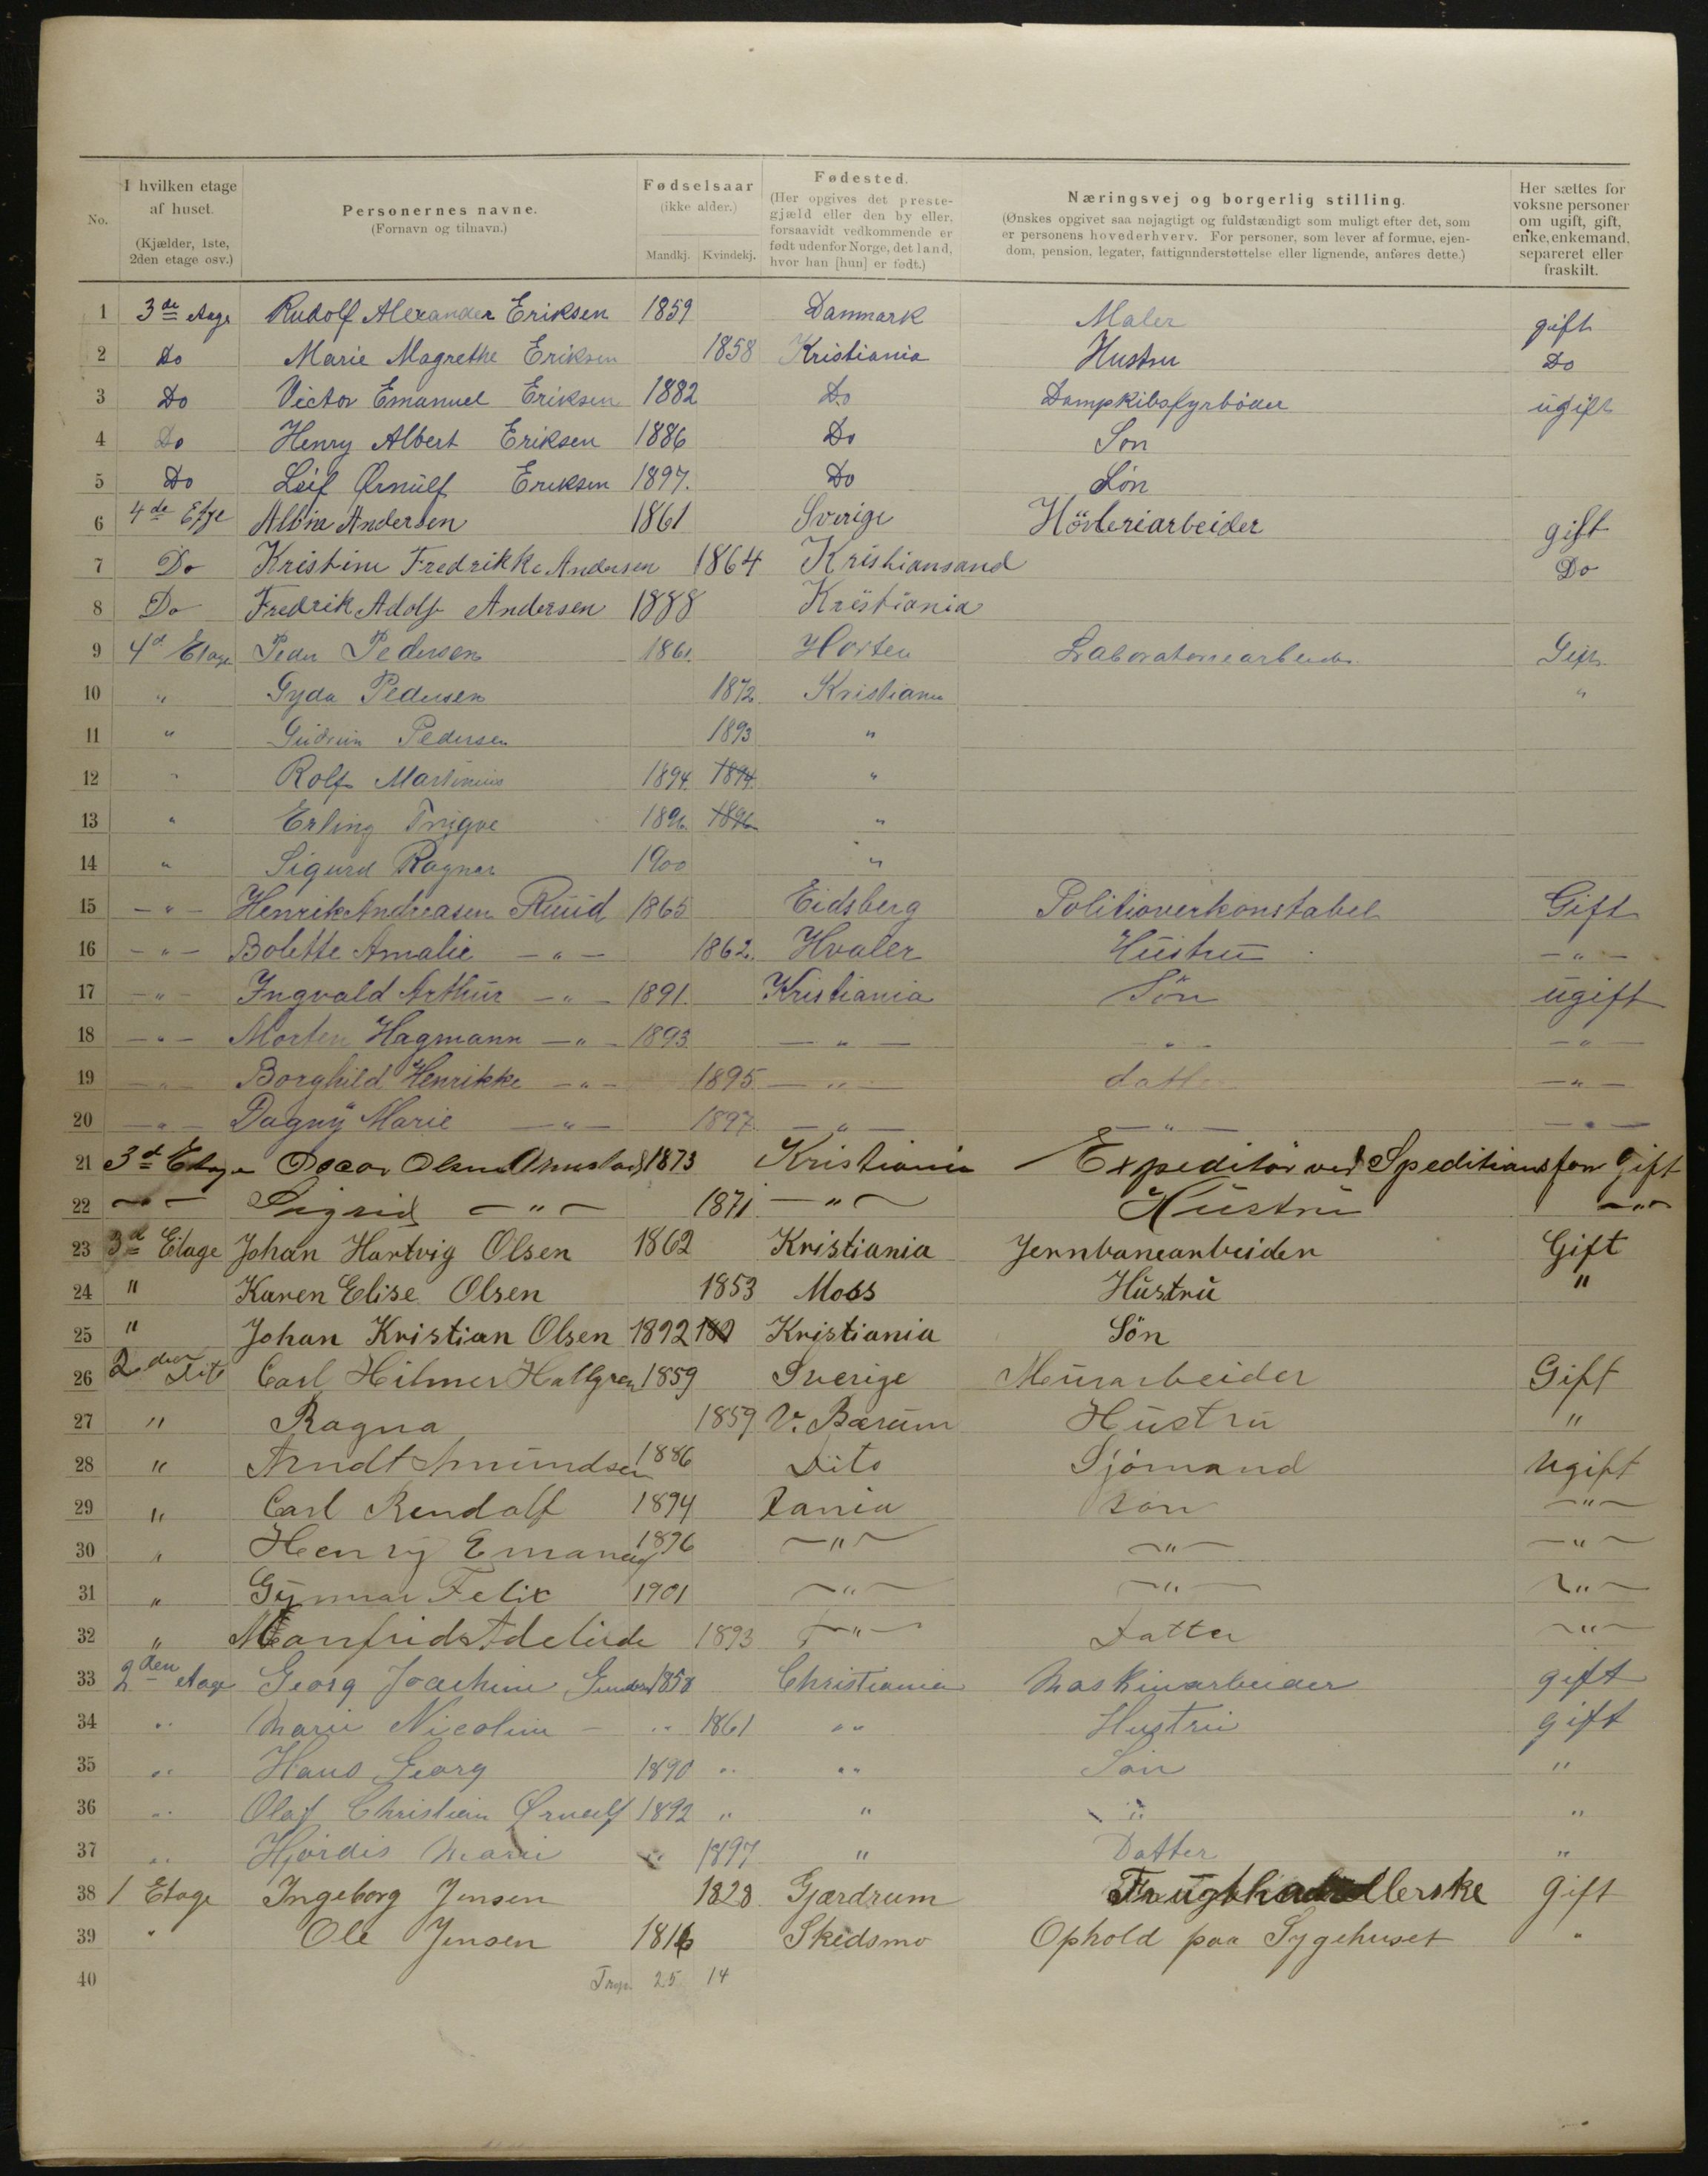 No. I hvilken etage af huset. (Kjælder, 1ste, 2den etage osv.) Personernes navne. (Fornavn og tilnavn.) Fødselsaar (ikke alder.) Mandkj. Kvindekj. Fødested. (Her opgives det prestegjæld eller den by eller, forsaavidt vedkommende er født udenfor Norge, det land, hvor han [hun] er født.) Næringsvej og borgerlig stilling. (Ønskes opgivet saa nøjagtigt og fuldstændigt som muligt efter det, som er personens hovederhverv. For personer, som lever af formue, ejendom, pension, legater, fattigunderstøttelse eller lignende, anføres dette.) Her sættes for voksne personer om ugift, gift, enke, enkemand, separeret eller fraskilt.
1 3de Etage Rudolf Alexander Eriksen 1859 Danmark Maler gift
2 Do Marie Magrethe Eriksen 1858 Kristiania Hustru Do
3 Do Victor Emanuel Eriksen 1882 Do Dampkibsfyrböder ugift
4 Do Henry Albert Eriksen 1886 Do Son
5 Do Leif Ørnulf Eriksen 1897. Do Sön
6 4de Etge Andersen 1861 Sverige Hövleriarbeider gift
7 Do Kristine Fredrikke Andersen 1864 Kristiansand Do
8 Do Fredrik Adolf Andersen 1888 Kristiania
9 4d Etage Peder Pedersen 1861. Horten Gift
10 " Gyda Pedersen 1872. Kristiania "
11 " Gudrun Pedersen 1893 "
12 " Rolf Martinius 1894. 1894. "
13 " Erling Trygve 1896. 1896 "
14 " Sigurd Ragnar 1900 "
15 - " - Henrik Andreasen Ruud 1865 Eidsberg Politioverkonstabel Gift
16 - " - Bolette Amalie - " - 1862. Hvaler Hustru - " -
17 - " - Ingvald Arthur - " - 1891. Kristiania Sön ugift
18 - " - Morten Hagmann - " - 1893 - " - - " - - " -
19 - " - Borghild Henrikke - " - 1895 - " - datter - " -
20 - " - Dagny Marie - " - 1897 - " - - " - - " -
21 3d Etage Oscar Olsen 1873 Kristiania Expeditör ved Gift
22 - " - Sigrid - " - 1871 - " - Hustru - " -
23 3d Etage Johan Hartvig Olsen 1862 Kristiania Jernbanearbeider Gift
24 " Karen Elise Olsen 1853 Moss Hustru "
25 " Johan Kristian Olsen 1892 Kristiania Sön
26 2den Dito Carl Hilmer Hallgren 1859 Sverige Murarbeider Gift
27 " Ragna 1859 V. Bærum Hustru "
28 " Arndt Amundsen 1886 Dito Sjömand Ugift
29 " Carl Rendolf 1894 Xania Sön - " -
30 " Henry Emanuel 1896 - " - - " - - " -
31 " Gunnar Felix 1901 - " - - " - - " -
32 " Manfrid Adelide 1893 - " - Datter - " -
33 2den etage Georg Joachim 1858 Christiania Maskinarbeider gift
34 " Marie Nicoline - " 1861 " Hustru gift
35 " Hans Georg 1890 " " Sön "
36 " Olaf Christian Ørnulf 1892 " " " "
37 " Hjørdis Marie " 1897 " Datter "
38 1 Etage Ingeborg Jensen 1828. Gjærdrum Frugthandlerske gift
39 " Ole Jensen 1816 Skedsmo Ophold paa Sygehuset "
40 25 14